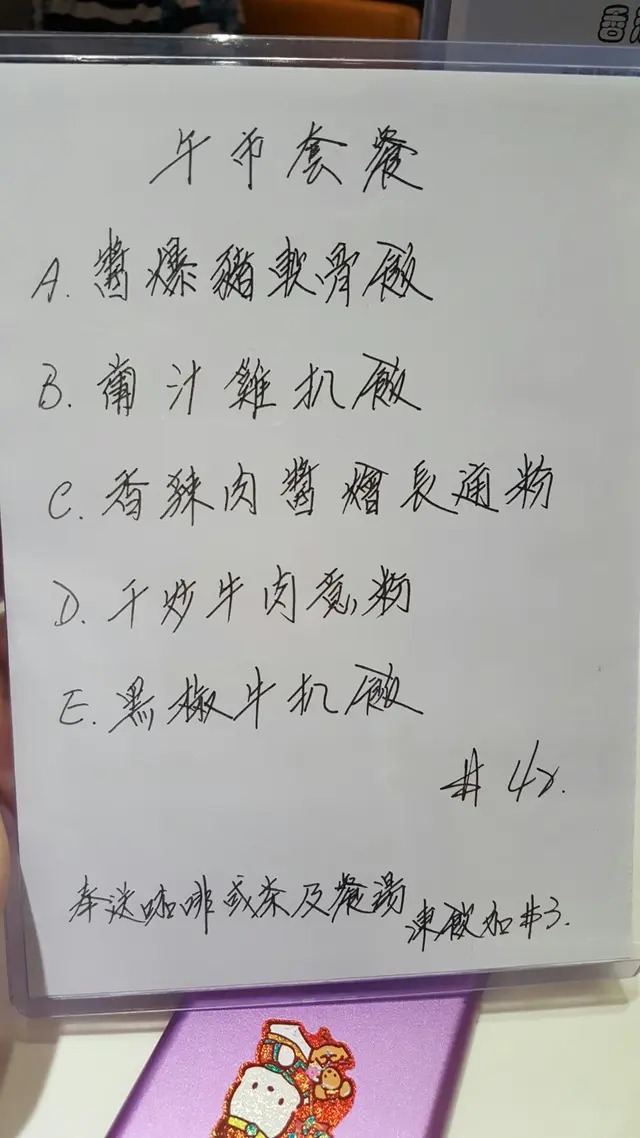 午市套餐
A. 醬爆豬軟骨飯
B. 葡汁雞扒飯
C. 香辣肉醬燴長通粉
D. 干炒牛肉意粉
E. 黑椒牛扒飯
# 42.
奉送咖啡或茶及餐湯
凍飲加#3.